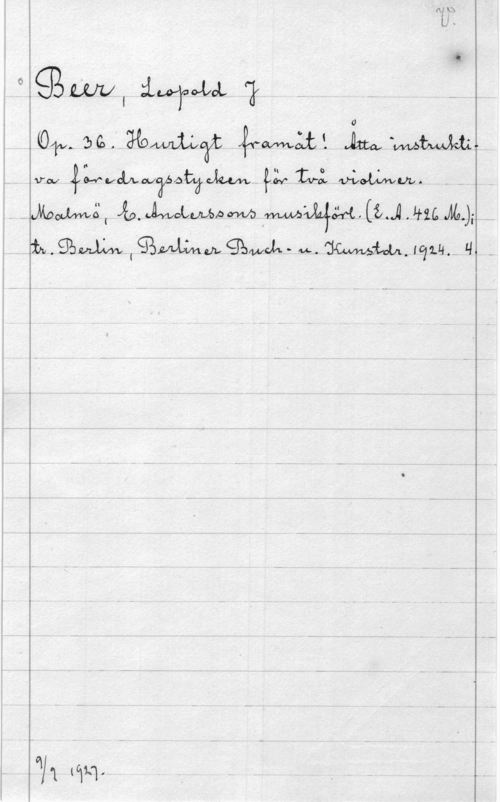 V.
Beer, Leopold J
Op. 36. Hurtigt framåt! Åtta instrukti-
va föredragsstycken för två violiner.
Malmö, E. Anderssons musikförl. (E.A. 426 M.);
tr. Berlin, Berliner Buch- u. Kunstdr. 1924. 4.
9/7 1927.